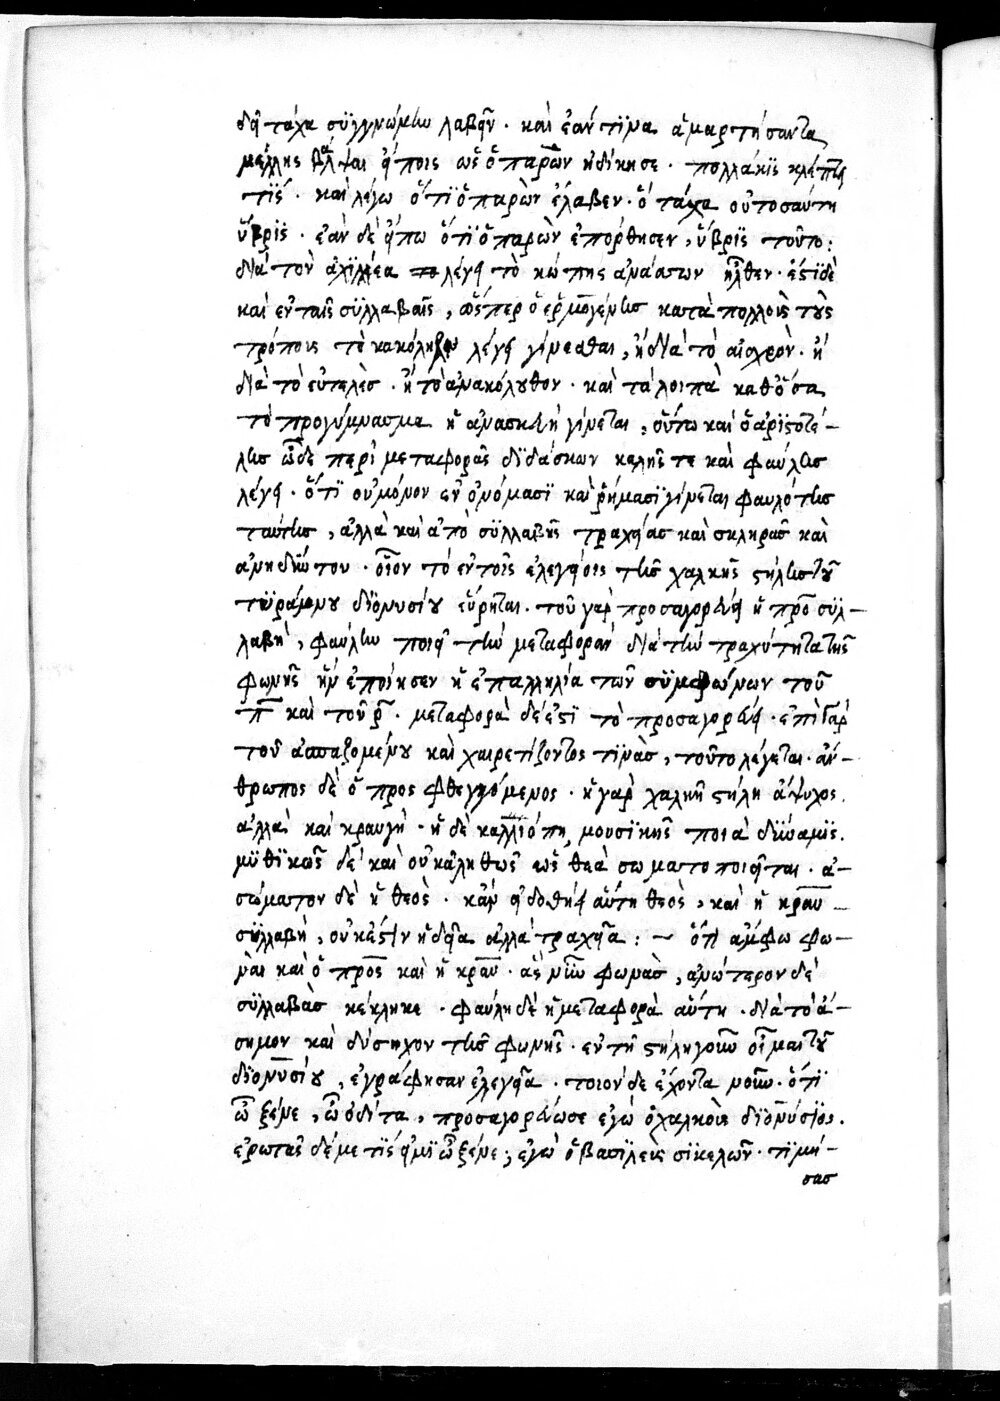 δεῖ τάχα συγγνώμην λαβεῖν · καὶ ἐάν τινα ἁμαρτήσαντα
μέλλῃς βλάψαι εἴποις ὡς ὁ παρὼν ἠδίκησε · πολλάκις κλέπτης
τίς · καὶ λέγω ὅτι ὁ παρὼν ἔλαβεν · ὃ τάχα οὐ τοσαύτη
ὕβρις · ἐὰν δὲ εἴπω ὅτι ὁ παρὼν ἐπόρθησεν, ὕβρις τοῦτο :
διὰ τὸν ἀχιλλέα λέγει τὸ κώπης ἀνάσσων ἦλθεν · ἔστι δὲ
καὶ ἐν ταῖς συλλαβαῖς, ὥσπερ ὁ ἑρμογένης κατὰ πολλοὺς τοὺς
τρόπους τὸ κακόζηλον λέγει γίνεσθαι, ἢ διὰ τὸ αἰσχρὸν · ἢ
διὰ τὸ εὐτελὲς · ἢ τὸ ἀνακόλουθον · καὶ τὰ λοιπὰ καθ' ὅσα
τὸ προγύμνασμα ἡ ἀνασκευὴ γίνεται, οὕτω καὶ ὁ ἀριστοτέ-
λης ὧδε περὶ μεταφορᾶς διδάσκων καλῆς τε καὶ φαύλης
λέγει · ὅτι οὐ μόνον ἐν ὀνόμασι καὶ ῥήμασι γίνεται φαυλότης
ταύτης, ἀλλὰ καὶ ἀπὸ συλλαβῆς τραχείας καὶ σκληρᾶς καὶ
ἀνηδύντου · οἷον τὸ ἐν τοῖς ἐλεγείοις τῆς χαλκῆς στήλης τοῦ
τυράννου διονυσίου εὕρηται · τοῦ γὰρ προσαγορεύει ἡ προ συλ-
λαβὴ, φαύλην ποιεῖ τὴν μεταφορὰν διὰ τὴν τραχύτητα τῆς
φωνῆς ἣν ἐποίησεν ἡ ἐπαλληλία τῶν συμφώνων τοῦ
π καὶ τοῦ ρ · μεταφορὰ δέ ἐστι τὸ προσαγορεύει · ἐπὶ γὰρ
τοῦ ἀσπαζομένου καὶ χαιρετίζοντος τινὰς, τοῦτο λέγεται · ἄν-
θρωπος δὲ ὁ προσφθεγγόμενος · ἡ γὰρ χαλκῆ στήλη ἄψυχος.
ἀλλὰ καὶ κραυγὴ · ἡ δὲ καλλιόπη, μουσικῆς ποιὰ δύναμις.
μυθικῶς δὲ καὶ οὐκ ἀληθῶς ὡς θεὰ σωματοποιεῖται · ἀ-
σώματον δὲ ἡ θεὸς · κἂν εἰ δοθείη αὕτη θεὸς, καὶ ἡ κραυ
συλλαβὴ, οὐκ ἔστιν ἡδεῖα ἀλλὰ τραχεῖα : ~ ὅτι ἄμφω φω-
ναὶ καὶ ὁ προς καὶ ἡ κραυ · ἃς νῦν φωνὰς, ἀνώτερον δὲ
συλλαβὰς κέκληκε · φαύλη δὲ ἡ μεταφορὰ αὕτη · διὰ τὸ ἄ-
σημον καὶ δύσηχον τῆς φωνῆς · ἐν τῇ στήλῃ γοῦν οἶμαι τοῦ
διονυσίου, ἐγράφησαν ἐλεγεῖα · τοιόνδε ἔχοντα νοῦν · ὅτι
ὦ ξένε, ὦ ὁδῖτα, προσαγορεύω σε ἐγὼ ὁ χαλκοῦς διονύσιος.
ἐρωτᾶς δέ με τίς εἰμι ὦ ξένε ; ἐγὼ ὁ βασιλεὺς σικελῶν · τιμή-
σας